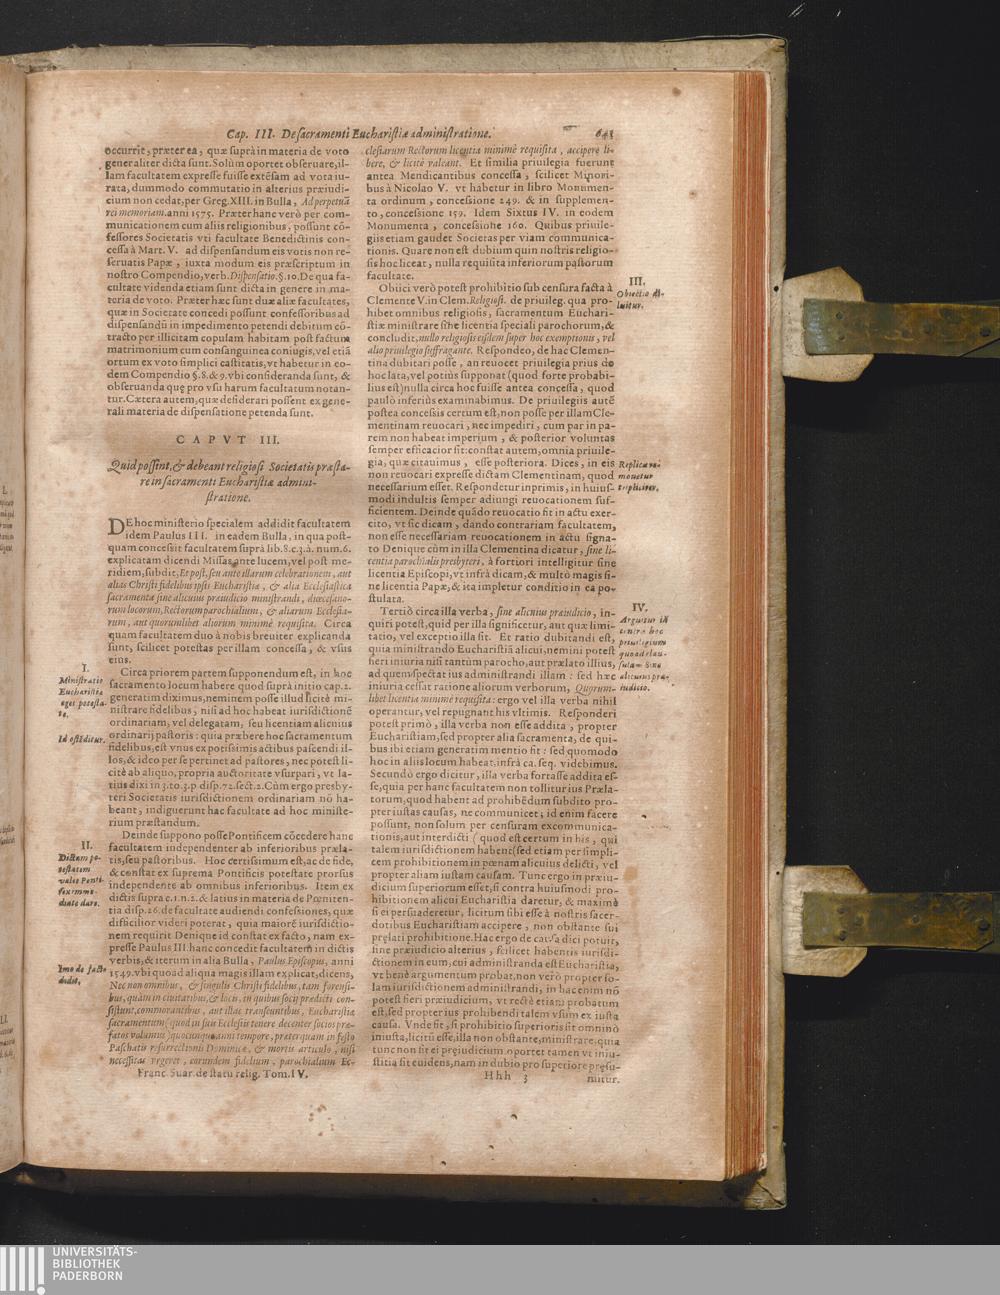 Cap. III. De sacramenti Eucharistiæ administratione. 643
occurrit, præter ea, quæ suprà in materia de voto
generaliter dicta sunt. Solùm oportet obseruare, il-
lam facultatem expresse fuisse extẽsam ad vota iu-
rata, dummodo commutatio in alterius præiudi-
cium non cedat, per Greg. XIII. in Bulla, Ad perpetuã
rei memoriam. anni 1575. Præter hanc verò per com-
municationem cum aliis religionibus, possunt cõ-
fessores Societatis vti facultate Benedictinis con-
cessa à Mart. V. ad dispensandum eis votis non re-
seruatis Papæ, iuxta modum eis præscriptum in
nostro Compendio, verb. Dispensatio. §. 10. De qua fa-
cultate videnda etiam sunt dicta in genere in ma-
teria de voto. Præter hæc sunt duæ aliæ facultates,
quæ in Societate concedi possunt confessoribus ad
dispensandũ in impedimento petendi debitum cõ-
tracto per illicitam copulam habitam post factum
matrimonium cum consanguinea coniugis, vel etiã
ortum ex voto simplici castitatis, vt habetur in eo-
dem Compendio §. 8. & 9. vbi consideranda sunt, &
obseruanda quę pro vsu harum facultatum notan-
tur. Cætera autem, quæ desiderari possent ex gene-
rali materia de dispensatione petenda sunt.
CAPVT III.
Quid possint, & debeant religiosi Societatis præsta-
re in sacramenti Eucharistiæ admini-
stratione.
DE hoc ministerio specialem addidit facultatem
idem Paulus III. in eadem Bulla, in qua post-
quam concessit facultatem suprà lib. 8. c. 3. à. num. 6.
explicatam dicendi Missas ante lucem, vel post me-
ridiem, subdit, Et post, seu ante illarum celebrationem, aut
alias Christi fidelibus ipsis Eucharistiæ, & alia Ecclesiastica
sacramenta sine alicuius præiudicio ministrandi, diœcesano-
rum locorum, Rectorum parochialium, & aliarum Ecclesia-
rum, aut quorumlibet aliorum minimè requisita. Circa
quam facultatem duo à nobis breuiter explicanda
sunt, scilicet potestas per illam concessa, & vsus
eius.
I.
Ministratio
Eucharistiæ
eget potesta-
te.
Circa priorem partem supponendum est, in hoc
sacramento locum habere quod suprà initio cap. 2.
generatim diximus, neminem posse illud licitè mi-
nistrare fidelibus, nisi ad hoc habeat iurisdictionẽ
ordinariam, vel delegatam, seu licentiam alicuius
Id ostẽditur.
ordinarij pastoris: quia præbere hoc sacramentum
fidelibus, est vnus ex potissimis actibus pascendi il-
los, & ideo per se pertinet ad pastores, nec potest li-
citè ab aliquo, propria auctoritate vsurpari, vt la-
tius dixi in 3. to. 3. p disp. 72. sect. 2. Cùm ergo presby-
teri Societatis iurisdictionem ordinariam nõ ha-
beant, indiguerunt hac facultate ad hoc ministe-
rium præstandum.
II.
Dictam po-
testatem
valet Ponti-
fex imme-
diatè dare.
Deinde suppono posse Pontificem cõcedere hanc
facultatem independenter ab inferioribus præla-
tis, seu pastoribus. Hoc certissimum est, ac de fide,
& constat ex suprema Pontificis potestate prorsus
independente ab omnibus inferioribus. Item ex
dictis supra c. 1. n. 2. & latius in materia de Pœniten-
tia disp. 26. de facultate audiendi confessiones, quæ
difficilior videri poterat, quia maiorẽ iurisdictio-
nem requirit Denique id constat ex facto, nam ex-
presse Paulus III. hanc concedit facultatem in dictis
verbis, & iterum in alia Bulla, Paulus Episcopus, anni
Imo de facto
dedit.
1549. vbi quoad aliqua magis illam explicat, dicens,
Nec non omnibus, & singulis Christi fidelibus, tam forensi-
bus, quàm in ciuitatibus, & locis, in quibus socij prædicti con-
sistunt, commorantibus, aut illac transeuntibus, Eucharistiæ
sacramentum (quod in suis Ecclesiis tenere decenter socios præ-
fatos volumus) quocunque anni tempore, præterquam in festo
Paschatis resurrectionis Dominicæ, & mortis articulo, nisi
necessitas vrgeret, eorundem fidelium, parochialium Ec-
Franc. Suar. de statu relig. Tom. IV.
clesiarum Rectorum licentia minimè requisita, accipere li-
berè, & licitè valeant. Et similia priuilegia fuerunt
antea Mendicantibus concessa, scilicet Minori-
bus à Nicolao V. vt habetur in libro Monumen-
ta ordinum, concessione 249. & in supplemen-
to, concessione 159. Idem Sixtus IV. in eodem
Monumenta, concessione 160. Quibus priuile-
giis etiam gaudet Societas per viam communica-
tionis. Quare non est dubium quin nostris religio-
sis hoc liceat, nulla requisita inferiorum pastorum
facultate.
III.
Obiectio di-
luitur.
Obiici verò potest prohibitio sub censura facta à
Clemente V. in Clem. Religiosi. de priuileg. qua pro-
hibet omnibus religiosis, sacramentum Euchari-
stiæ ministrare sine licentia speciali parochorum, &
concludit, nullo religiosis eisdem super hoc exemptionis, vel
alio priuilegio suffragante. Respondeo, de hac Clemen-
tina dubitari posse, an reuocet priuilegia prius de
hoc lata, vel potiùs supponat (quod forte probabi-
lius est) nulla circa hoc fuisse antea concessa, quod
paulò inferiùs examinabimus. De priuilegiis autẽ
postea concessis certum est, non posse per illam Cle-
mentinam reuocari, nec impediri, cum par in pa-
rem non habeat imperium, & posterior voluntas
semper efficacior sit: constat autem, omnia priuile-
Replica re-
mouetur
tripliciter.
gia, quæ citauimus, esse posteriora. Dices, in eis
non reuocari expresse dictam Clementinam, quod
necessarium esset. Respondetur inprimis, in huius-
modi indultis semper adiungi reuocationem suf-
ficientem. Deinde quãdo reuocatio fit in actu exer-
cito, vt sic dicam, dando contrariam facultatem,
non esse necessariam reuocationem in actu signa-
to Denique cùm in illa Clementina dicatur, sine li-
centia parochialis presbyteri, à fortiori intelligitur sine
licentia Episcopi, vt infrà dicam, & multò magis si-
ne licentia Papæ, & ita impletur conditio in ea po-
stulata.
IV.
Arguitur in
contra hoc
priuilegium
quoad clau-
sulam Sine
alicuius præ-
iudicio.
Tertiò circa illa verba, sine alicuius præiudicio, in-
quiri potest, quid per illa significetur, aut quæ limi-
tatio, vel exceptio illa sit. Et ratio dubitandi est,
quia ministrando Eucharistiã alicui, nemini potest
fieri iniuria nisi tantùm parocho, aut prælato illius,
ad quem spectat ius administrandi illam: sed hæc
iniuria cessat ratione aliorum verborum, Quorum-
libet licentia minimè requisita: ergo vel illa verba nihil
operantur, vel repugnant his vltimis. Responderi
potest primò, illa verba non esse addita, propter
Eucharistiam, sed propter alia sacramenta, de qui-
bus ibi etiam generatim mentio fit: sed quomodo
hoc in aliis locum habeat, infrà ca. seq. videbimus.
Secundò ergo dicitur, illa verba fortasse addita es-
se, quia per hanc facultatem non tollitur ius Præla-
torum, quod habent ad prohibẽdum subdito pro-
pter iustas causas, ne communicet; id enim facere
possunt, non solum per censuram excommunica-
tionis, aut interdicti (quod est certum in his, qui
talem iurisdictionem habent) sed etiam per simpli-
cem prohibitionem in pœnam alicuius delicti, vel
propter aliam iustam causam. Tunc ergo in præiu-
dicium superiorum esset, si contra huiusmodi pro-
hibitionem alicui Eucharistia daretur, & maximè
si ei persuaderetur, licitum sibi esse à nostris sacer-
dotibus Eucharistiam accipere, non obstante sui
prelati prohibitione. Hac ergo de causa dici potuit,
sine præiudicio alterius, scilicet habentis iurisdi-
ctionem in eum, cui administranda est Eucharistia,
vt benè argumentum probat, non verò propter so-
lam iurisdictionem administrandi, in hac enim nõ
potest fieri præiudicium, vt rectè etiam probatum
est, sed propter ius prohibendi talem vsum ex iusta
causa. Vnde fit, si prohibitio superioris sit omninò
iniusta, licitũ esse, illa non obstante, ministrare, quia
tunc non fit ei præiudicium. oportet tamen vt iniu-
stitia sit euidens, nam in dubio pro superiore præsu-
Hhh 3 mitur.
UNIVERSITÄTS-
BIBLIOTHEK
PADERBORN